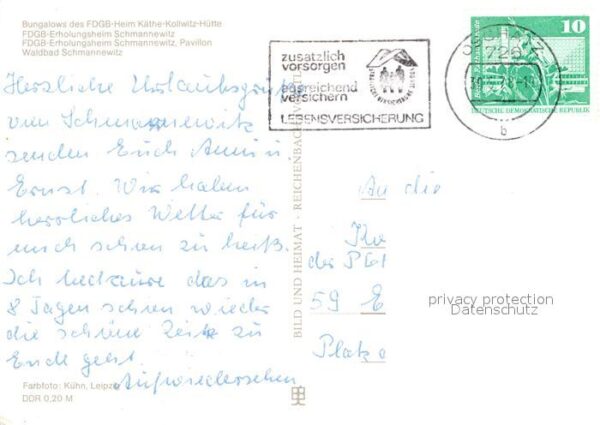 Bungalows des FDGB-Heim Käthe-Kollwitz-Hütte
FDGB-Erholungsheim Schmannewitz
FDGB-Erholungsheim Schmannewitz, Pavillon
Waldbad Schmannewitz
Herzliche Urlaubsgrüße
von Schmannewitz
senden Euch Anni u
Ernst. Wir haben
herrliches Wetter für
mich schon zu heiß.
Ich bedaure das in
8 Tagen schon wieder
die schöne Zeit zu
Ende geht.
Aufwiedersehen
Farbfoto: Kühn, Leipzig
DDR 0,20 M
BILD UND HEIMAT · REICHENBACH
zusätzlich
vorsorgen
ausreichend
versichern
LEBENSVERSICHERUNG
OSCHATZ
726
b
10
DEUTSCHE DEMOKRATISCHE REPUBLIK
An die
59 E
privacy protection
Datenschutz